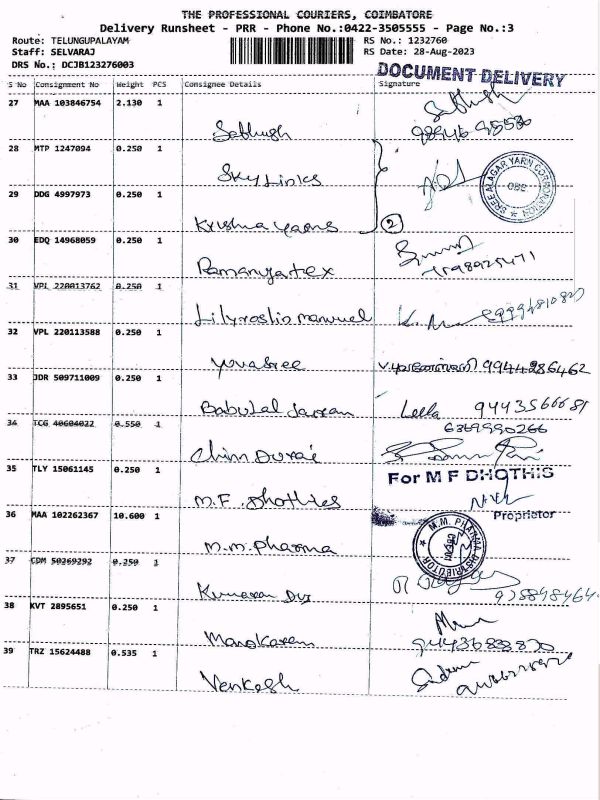 THE PROFESSIONAL COURIERS, COIMBATORE
Delivery Runsheet - PRR - Phone No.:0422-3505555 - Page No.:3
Route: TELUNGUPALAYAM
RS No.: 1232760
Staff: SELVARAJ
RS Date: 28-Aug-2023
DRS No.: DCJB123276003
DOCUMENT DELIVERY
S No Consignment No Weight PCS Consignee Details Signature
27 MAA 103846754 2.130 1
Sathush
28 MTP 1247094 0.250 1
Sky Links
SREE ALAGAR YARN CORPORATION
29 DDG 4997973 0.250 1
Krishna yarns 2
30 EDQ 14968059 0.250 1
Ramanyatex
31 VPL 220013762 0.250 1
Lilyroslio manuvel
32 VPL 220113588 0.250 1
yuvasree 9944286462
33 JDR 509711009 0.250 1
Babulal Leela
6369990266
34 TCG 40604022 0.550 1
Chinn Durai
35 TLY 15061145 0.250 1
For M F DHOTHIS
M.F. Dhothies
Proprietor
36 MAA 102262367 10.600 1
M.M. Pharma
M.M. PHARMA DISTRIBUTOR
37 CDM 50269292 0.250 1
Kumaran
38 KVT 2895651 0.250 1
Manokaran
39 TRZ 15624488 0.535 1
Venkesh